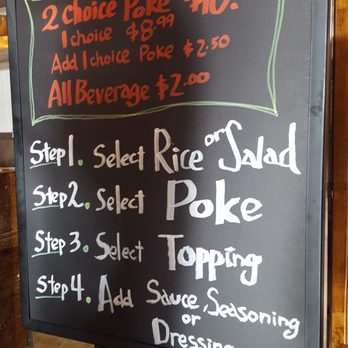 2 choice Poke $10.
1 choice $8.99
Add 1 choice Poke $2.50
All Beverage $2.00
Step 1. Select Rice or Salad
Step 2. Select Poke
Step 3. Select Topping
Step 4. Add Sauce, Seasoning
or
Dressing